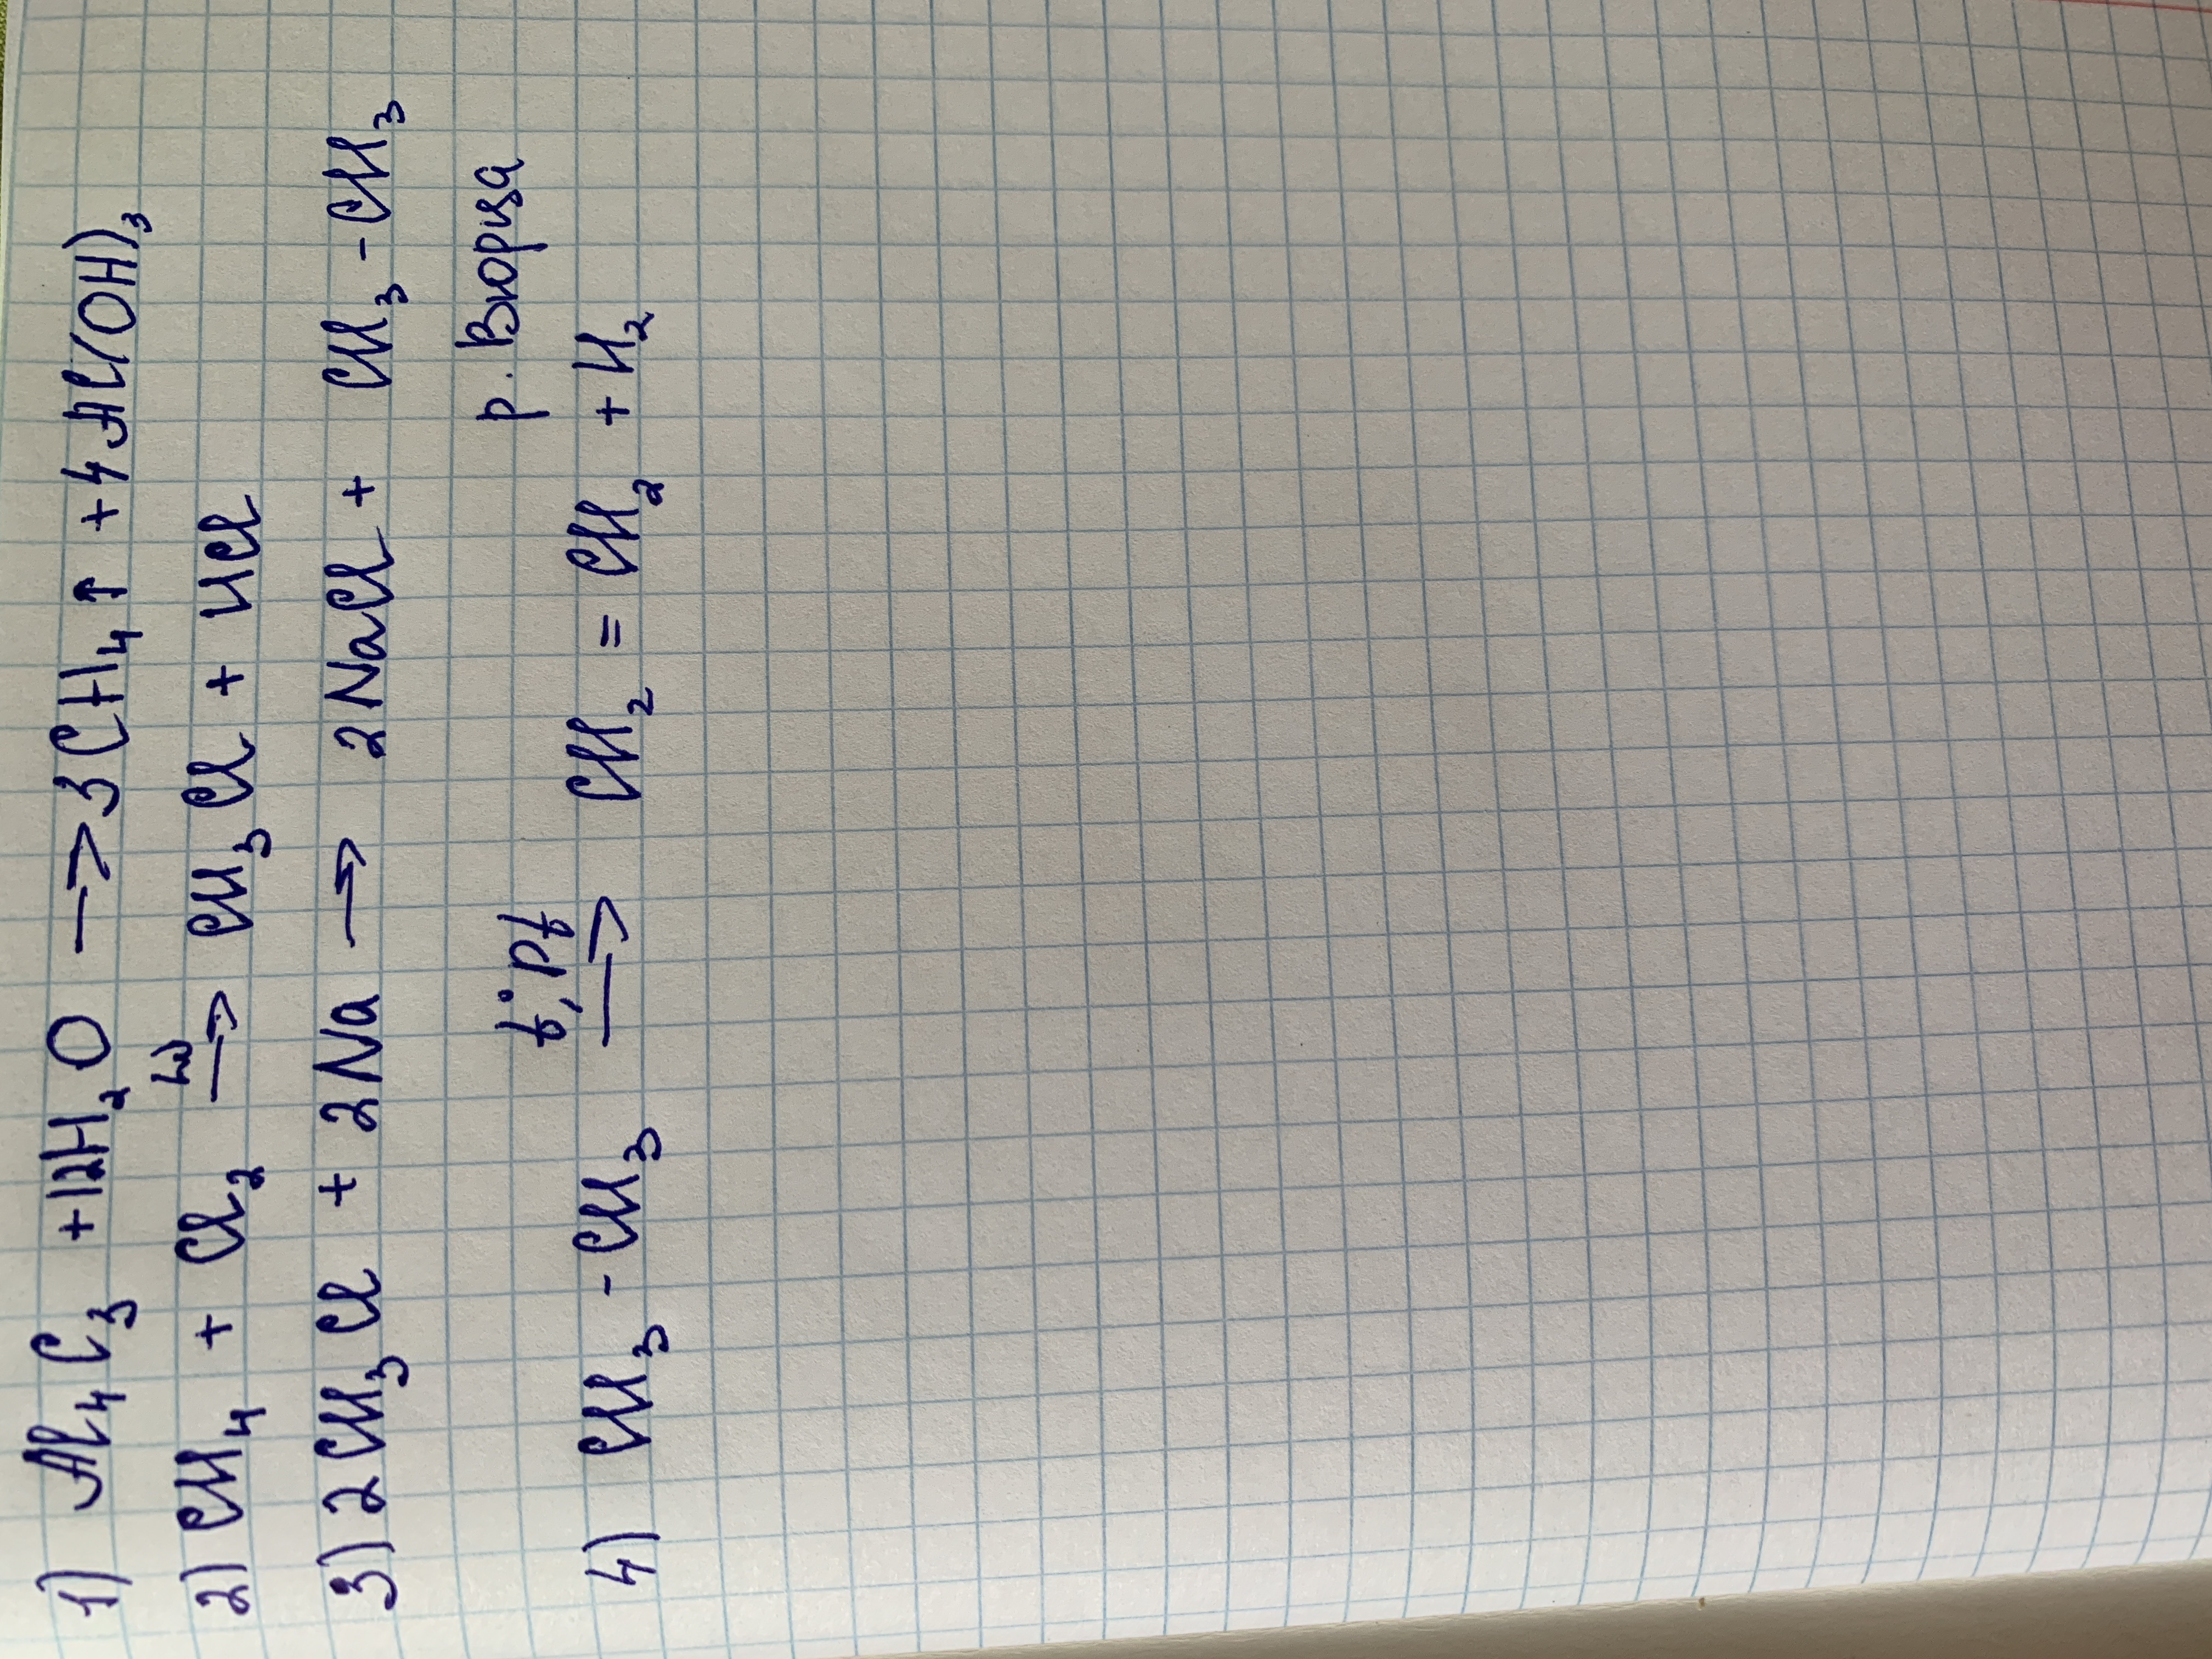 1) Al₄C₃ +12H₂O → 3CH₄↑ + 4Al(OH)₃
2) CH₄ + Cl₂ →(hν) CH₃Cl + HCl
3) 2CH₃Cl + 2Na → 2NaCl + CH₃-CH₃
р. Вюрца
4) CH₃-CH₃ →(t°, Pt) CH₂ = CH₂ + H₂